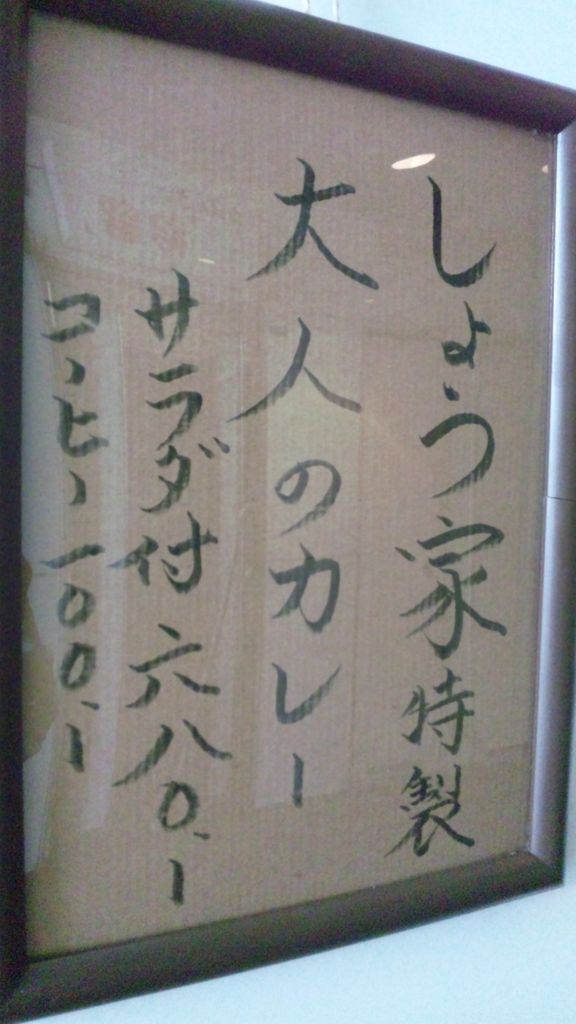 しょう家特製
大人のカレー
サラダ付 六八〇.ー
コーヒー 一〇〇.ー